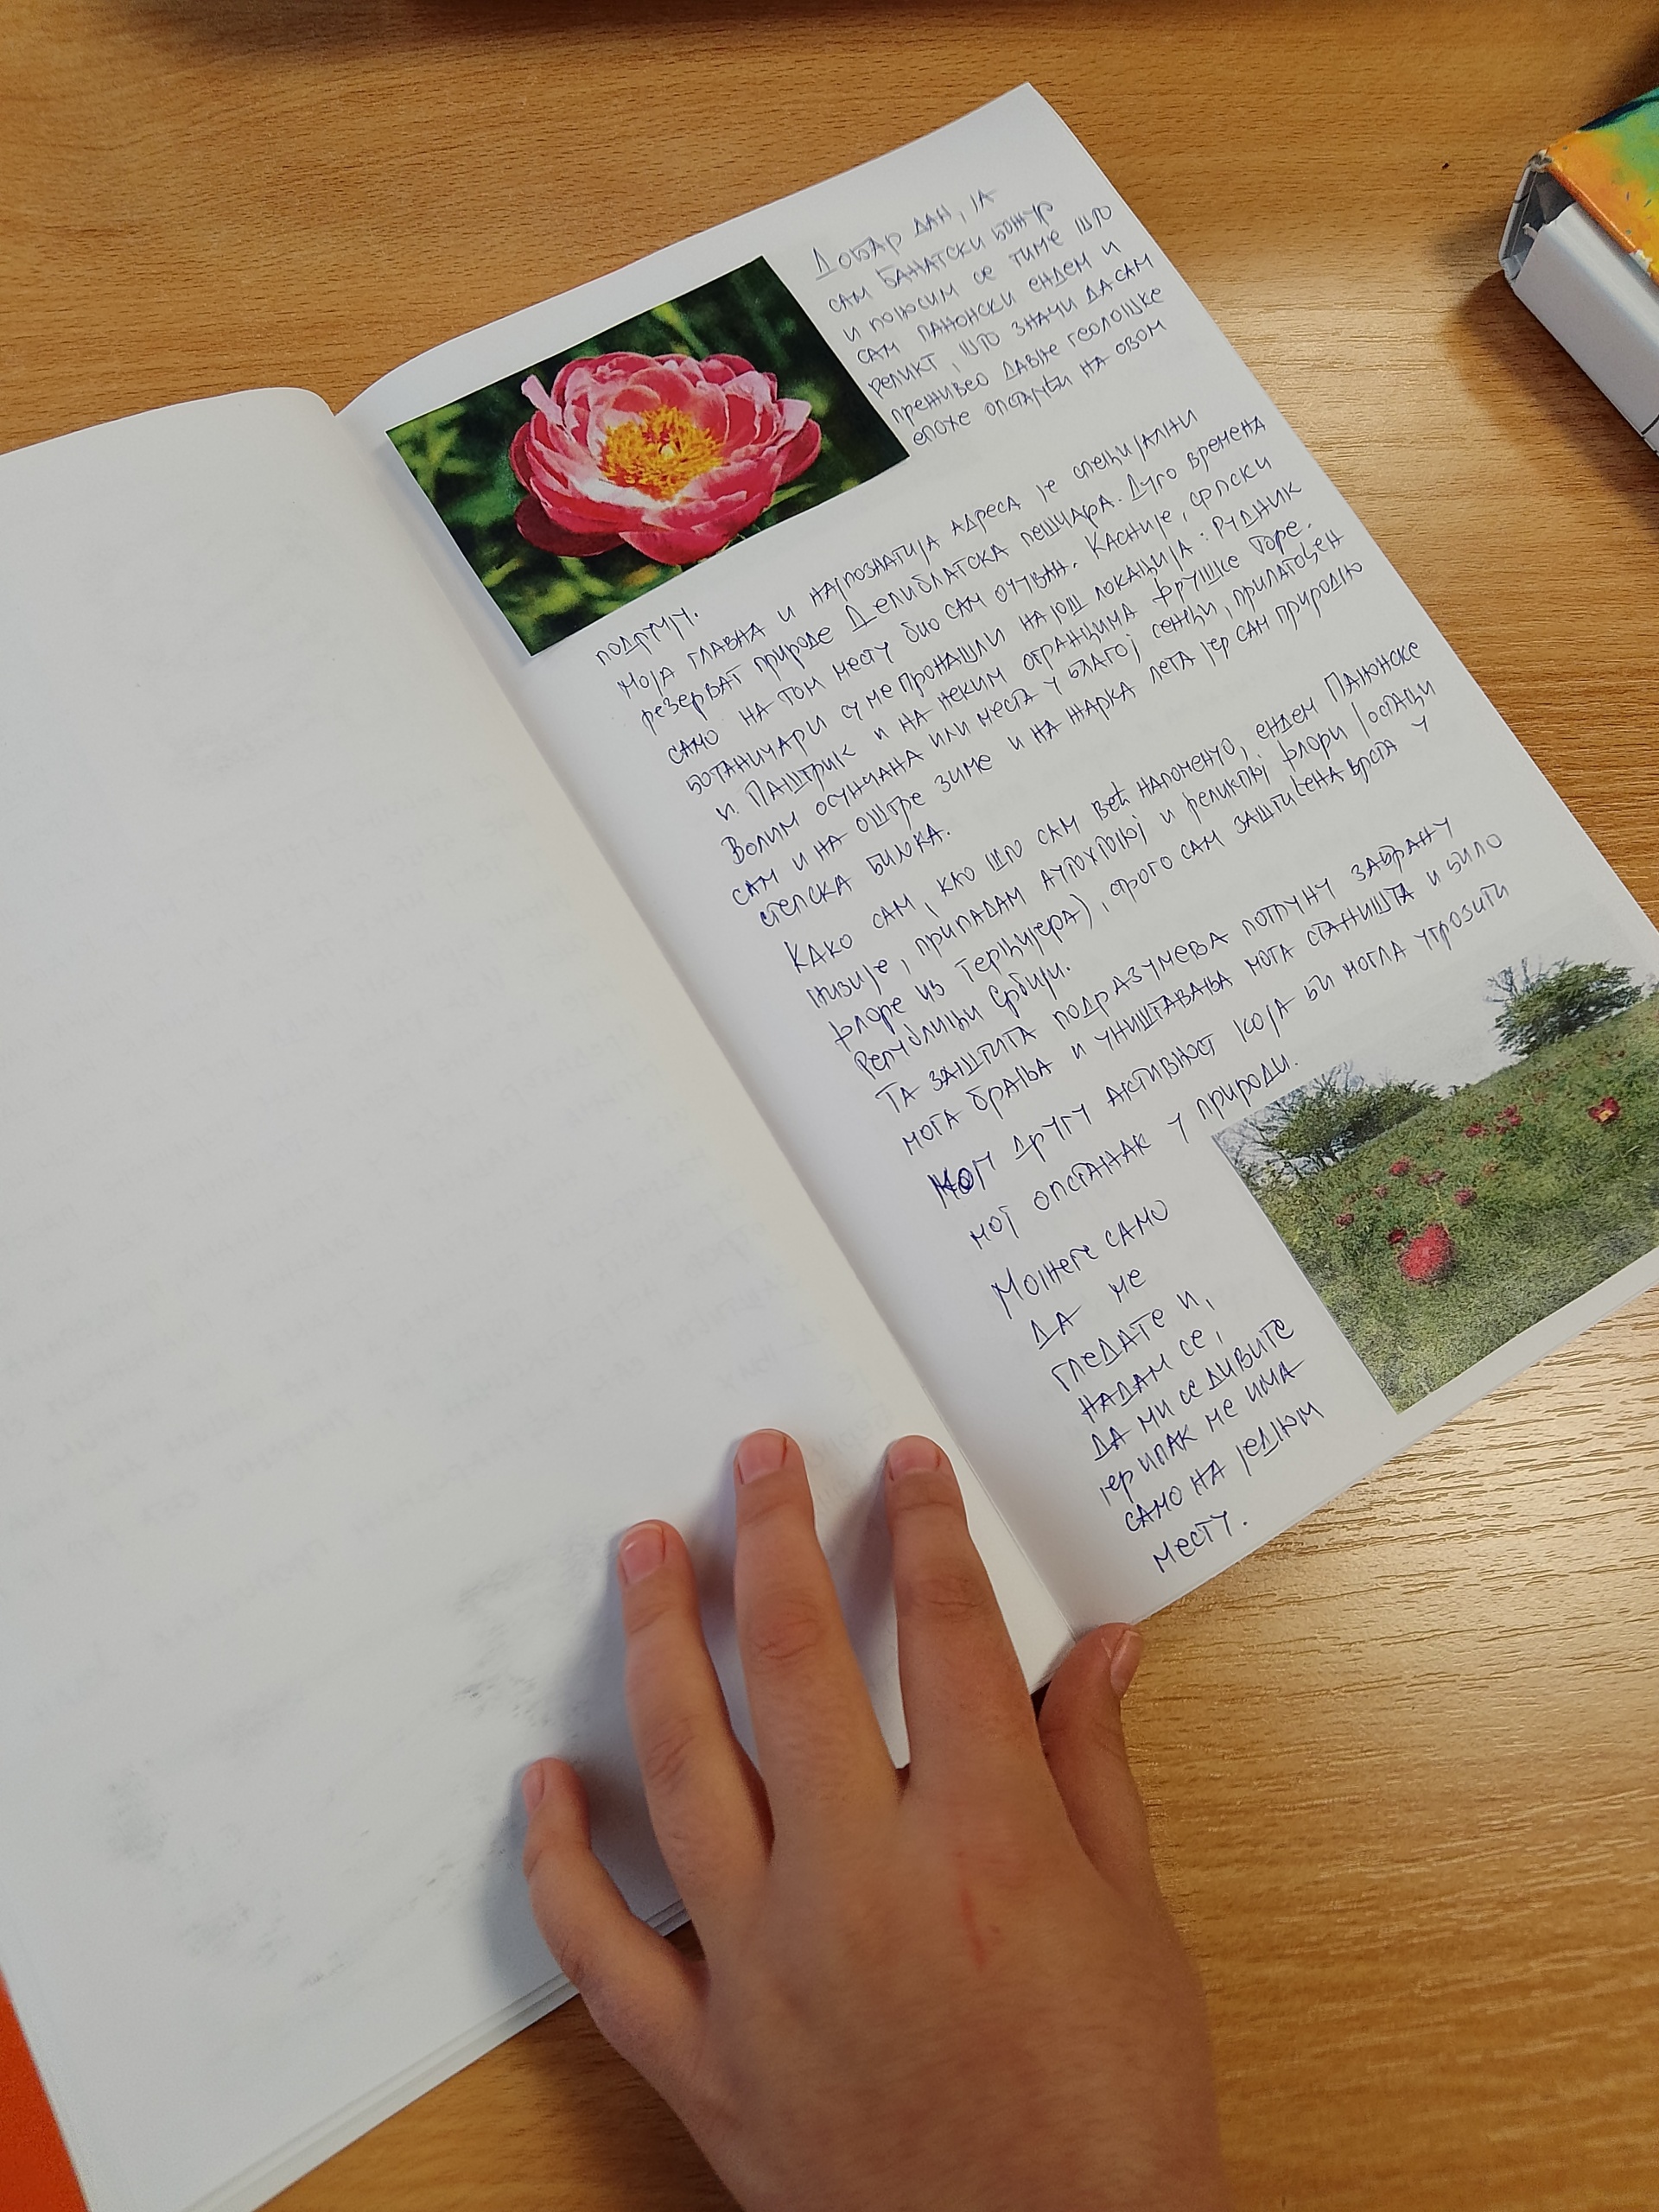 Добар дан, ја
сам банатски божур
и поносим се тиме што
сам панонски ендем и
реликт, што значи да сам
преживео давне геолошке
епохе опстајући на овом
подручју.
Моја главна и најпознатија адреса је специјални
резерват природе Делиблатска пешчара. Дуго времена
само на том месту био сам очуван. Касније, српски
ботаничари су ме пронашли на још локација: Рудник
и Паштрик и на неким огранцима Фрушке Горе.
Волим осунчана или места у благој сенци, прилагођен
сам и на оштре зиме и на жарка лета јер сам природно
степска биљка.
Како сам, као што сам већ напоменуо, ендем Панонске
низије, припадам аутохтоној и реликтној флори (остаци
флоре из Терцијера), строго сам заштићена врста у
Републици Србији.
Та заштита подразумева потпуну забрану
мога брања и уништавања мога станишта и било
коју другу активност која би могла угрозити
мој опстанак у природи.
Можете само
да ме
гледате и,
надам се,
да ми се дивите
јер ипак ме има
само на једном
месту.